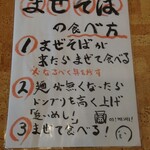 まぜそば
の食べ方
① まぜそばが
来たらまぜて食べる
② 麺が無くなったら
ドンブリを高く上げ
「追いめし」
③ まぜて食べる!